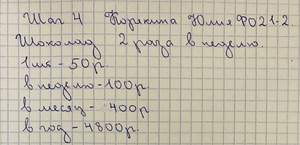 Шаг 4 Корекина Юлия ФО21-2.
Шоколад 2 раза в неделю.
1шт - 50р.
в неделю - 100р.
в месяц - 400р
в год - 4800р.